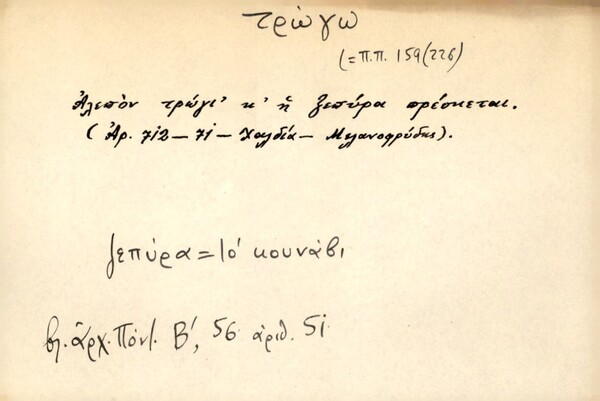 τρώγω
(=Π.Π. 159(226)
Ἀλεπὸν τρώγι' κ' ἡ ζεπύρα πρέσκεται.
(Ἀρ. 712 — 71 — Χαλδία — Μελανοφρύδης).
ζεπύρα = τό κουνάβι
βλ. ἀρχ. Πόντ. Β', 56 ἀριθ. 51